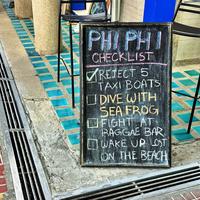 PHI PHI
CHECKLIST
REJECT 5
TAXI BOATS
DIVE WITH
SEA FROG
FIGHT AT
RAGGAE BAR
WAKE UP LOST
ON THE BEACH